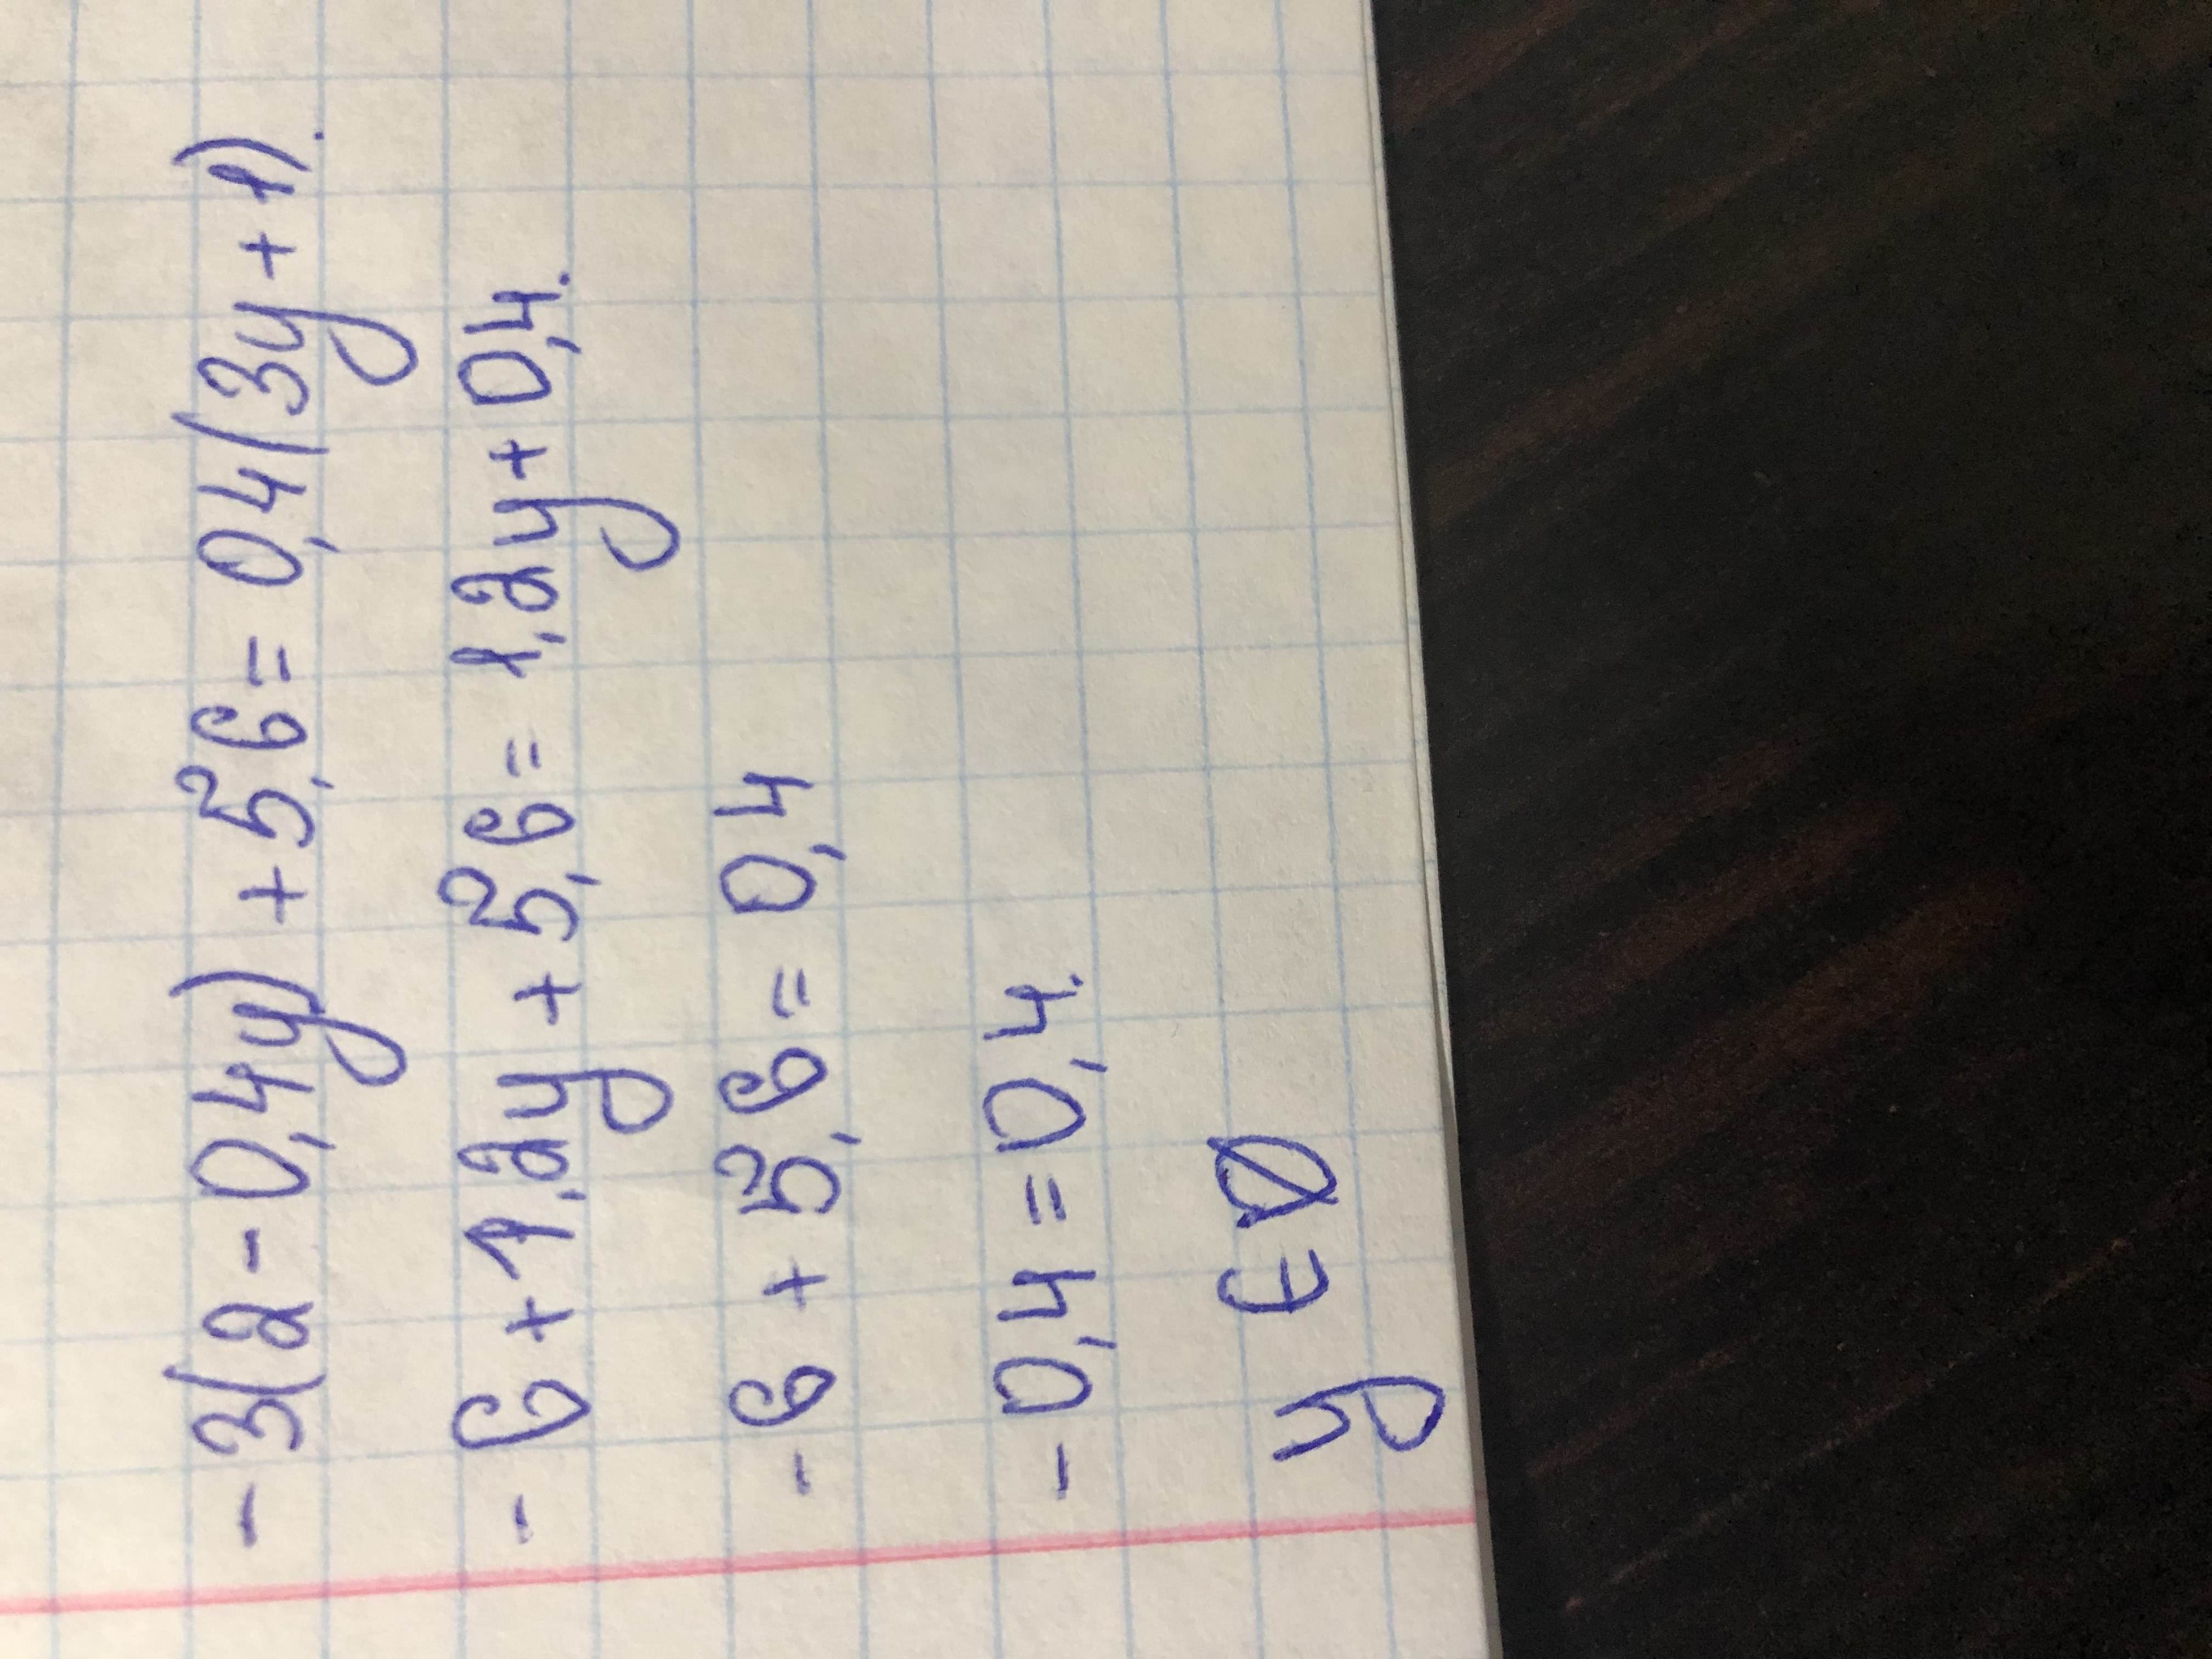 -3(2-0,4y)+5,6=0,4(3y+1).
-6+1,2y+5,6=1,2y+0,4.
-6+5,6=0,4
-0,4=0,4.
y ∈ Ø